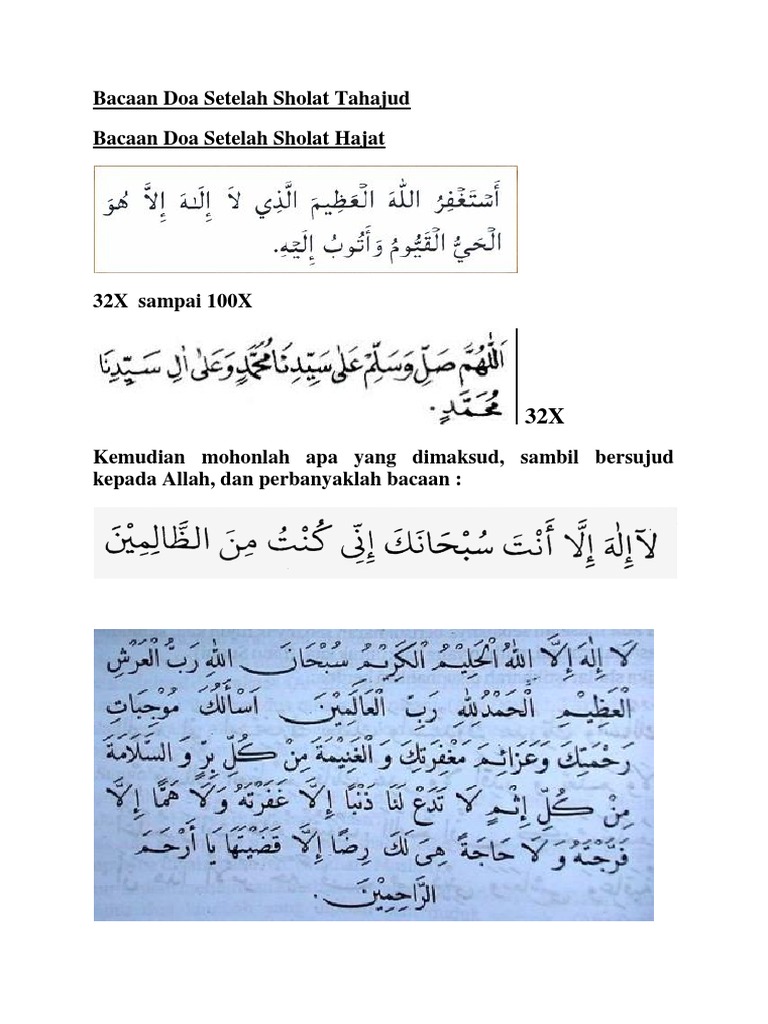 Bacaan Doa Setelah Sholat Tahajud
Bacaan Doa Setelah Sholat Hajat
أَسْتَغْفِرُ اللهَ الْعَظِيمَ الَّذِي لَا إِلَـٰهَ إِلَّا هُوَ
الْحَيُّ الْقَيُّومُ وَأَتُوبُ إِلَيْهِ.
32X sampai 100X
اَللّٰهُمَّ صَلِّ وَسَلِّمْ عَلٰى سَيِّدِنَا مُحَمَّدٍ وَعَلٰى اٰلِ سَيِّدِنَا
مُحَمَّدٍ.
32X
Kemudian mohonlah apa yang dimaksud, sambil bersujud
kepada Allah, dan perbanyaklah bacaan :
لَآ إِلٰهَ إِلَّا أَنْتَ سُبْحَانَكَ إِنِّى كُنْتُ مِنَ الظَّالِمِيْنَ
لَا اِلٰهَ اِلَّا اللهُ الْحَلِيْمُ الْكَرِيْمُ سُبْحَانَ اللهِ رَبُّ الْعَرْشِ
الْعَظِيْمِ الْحَمْدُ لِلهِ رَبِّ الْعَالَمِيْنَ اَسْأَلُكَ مُوْجِبَاتِ
رَحْمَتِكَ وَعَزَائِمَ مَغْفِرَتِكَ وَالْغَنِيْمَةَ مِنْ كُلِّ بِرٍّ وَالسَّلَامَةَ
مِنْ كُلِّ اِثْمٍ لَا تَدَعْ لَنَا ذَنْبًا اِلَّا غَفَرْتَهُ وَلَا هَمًّا اِلَّا
فَرَّجْتَهُ وَلَا حَاجَةً هِىَ لَكَ رِضًا اِلَّا قَضَيْتَهَا يَا أَرْحَمَ
الرَّاحِمِيْنَ.